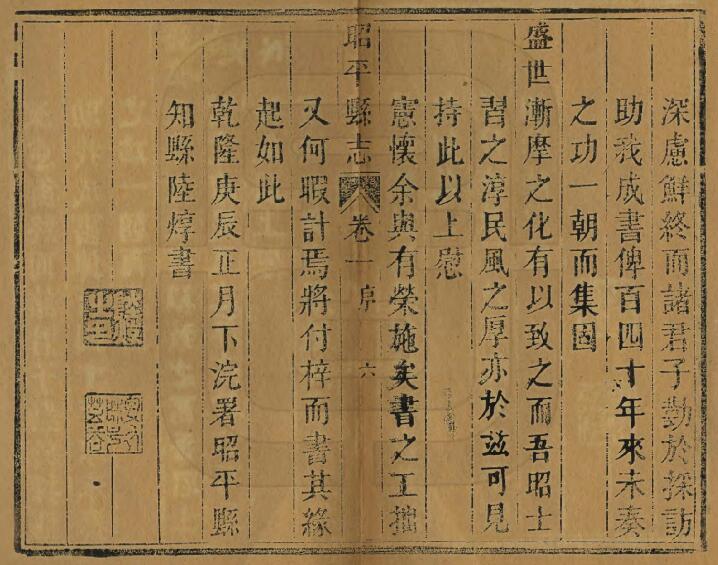 深慮鮮終而諸君子勷於採訪
助我成書俾百四十年來未奏
之功一朝而集固
盛世漸摩之化有以致之而吾昭士
習之淳民風之厚亦於茲可見
持此以上慰
憲懷余與有榮施矣書之工拙
昭平縣志 卷一序 六
又何暇計焉將付梓而書其緣
起如此
乾隆庚辰正月下浣署昭平縣
知縣陸焞書